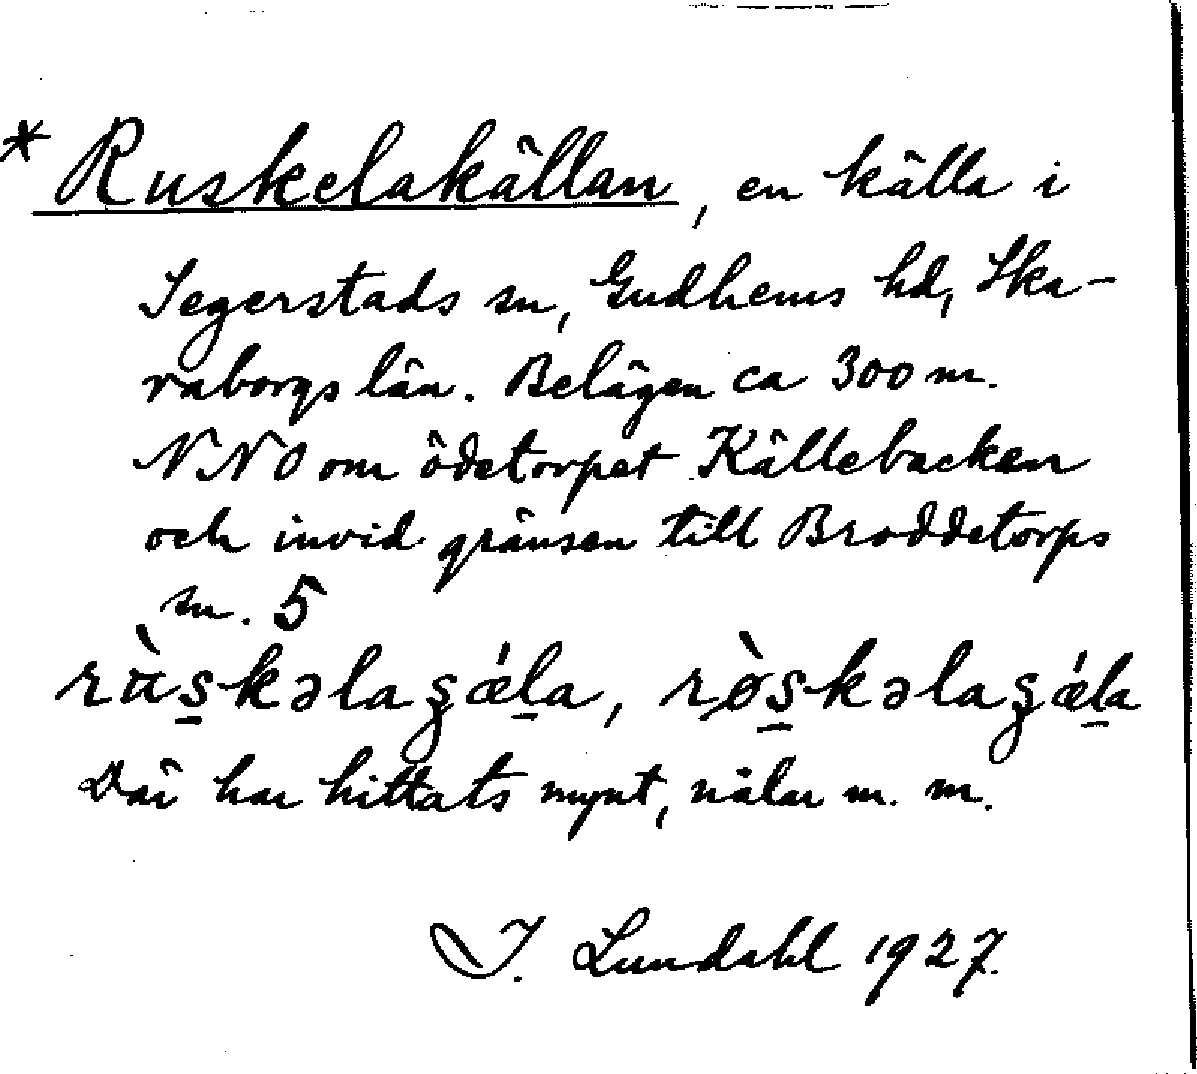 * Ruskelakällan, en källa i
Segerstads sn, Gudhems hd, Ska-
raborgs län. Belägen ca 300 m.
NNO om ödetorpet Källebacken
och invid gränsen till Broddetorps
sn. 5
Där har hittats mynt, nålar m. m.
I. Lundahl 1927.